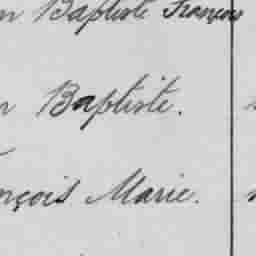 n Baptiste François
n Baptiste.
nçois Marie.